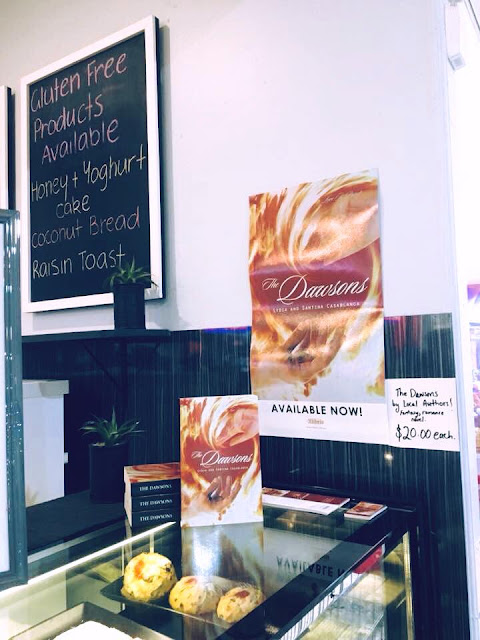 Gluten Free
Products
Available
Honey + Yoghurt
cake
Coconut Bread
Raisin Toast
The
Dawsons
Lydia and Santina Casablanca
AVAILABLE NOW!
The Dawsons
by Local Authors!
fantasy, romance
novel.
$20.00 each.
The
Dawsons
Lydia and Santina Casablanca
THE DAWSONS
THE DAWSONS
THE DAWSONS
AVAILABLE